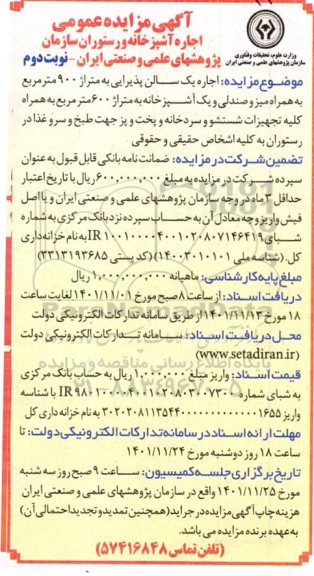 آگهی مزایده عمومی
اجاره آشپزخانه و رستوران سازمان
پژوهشهای علمی و صنعتی ایران - نوبت دوم
وزارت علوم، تحقیقات و فناوری
سازمان پژوهشهای علمی و صنعتی ایران
موضوع مزایده: اجاره یک سالن پذیرایی به متراژ ۹۰۰ مترمربع
به همراه میز و صندلی و یک آشپزخانه به متراژ ۶۰۰ متر مربع به همراه
کلیه تجهیزات شستشو و سردخانه و پخت و پز جهت طبخ و سرو غذا در
رستوران به کلیه اشخاص حقیقی و حقوقی
تضمین شرکت در مزایده: ضمانت نامه بانکی قابل قبول به عنوان
سپرده شرکت در مزایده به مبلغ ۶۰۰,۰۰۰,۰۰۰ ریال با تاریخ اعتبار
حداقل ۳ ماه در وجه سازمان پژوهشهای علمی و صنعتی ایران و یا اصل
فیش واریز وجه معادل آن به حساب سپرده نزد بانک مرکزی به شماره
شبای IR ۱۰۰۱۰۰۰۰۴۰۰۱۰۲۰۸۰۷۱۴۶۴۱۹ به نام خزانه داری
کل. (شناسه ملی ۱۴۰۰۳۰۱۰۱۰۱) (کد پستی ۳۳۱۳۱۹۳۶۸۵)
مبلغ پایه کارشناسی: ماهیانه ۱,۰۰۰,۰۰۰,۰۰۰ ریال
دریافت اسناد: از ساعت ۸ صبح مورخ ۱۴۰۱/۱۱/۰۱ لغایت ساعت
۱۸ مورخ ۱۴۰۱/۱۱/۱۳ از طریق سامانه تدارکات الکترونیکی دولت
محل دریافت اسناد: سامانه تدارکات الکترونیکی دولت
(www.setadiran.ir)
قیمت اسناد: واریز مبلغ ۱,۰۰۰,۰۰۰ ریال به حساب بانک مرکزی
به شبای شماره IR ۹۸۰۱۰۰۰۰۴۰۰۱۰۲۰۸۰۳۰۰۷۳۰۰ با شناسه
واریز ۱۶۵۵ به نام خزانه داری کل
مهلت ارائه اسناد در سامانه تدارکات الکترونیکی دولت: تا
ساعت ۱۸ روز دوشنبه مورخ ۱۴۰۱/۱۱/۲۴
تاریخ برگزاری جلسه کمیسیون: ساعت ۹ صبح روز سه شنبه
مورخ ۱۴۰۱/۱۱/۲۵ واقع در سازمان پژوهشهای علمی و صنعتی ایران
هزینه چاپ آگهی مزایده در جراید (همچنین تمدید و تجدید احتمالی آن)
به عهده برنده مزایده می باشد.
(تلفن تماس ۵۷۴۱۶۸۴۸)